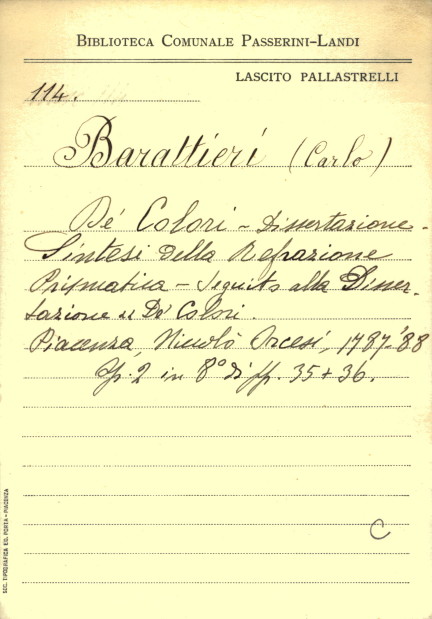 BIBLIOTECA COMUNALE PASSERINI-LANDI
LASCITO PALLASTRELLI
114.
Barattieri (Carlo)
Dé Colori - Dissertazione -
Sintesi della Refrazione
Prismatica - Seguito alla Disser-
tazione De' Colori.
Piacenza, Niccolò Orcesi, 1787-'88
in 8° di pp. 35 + 36.
C
SOC. TIPOGRAFICA ED. PORTA - PIACENZA